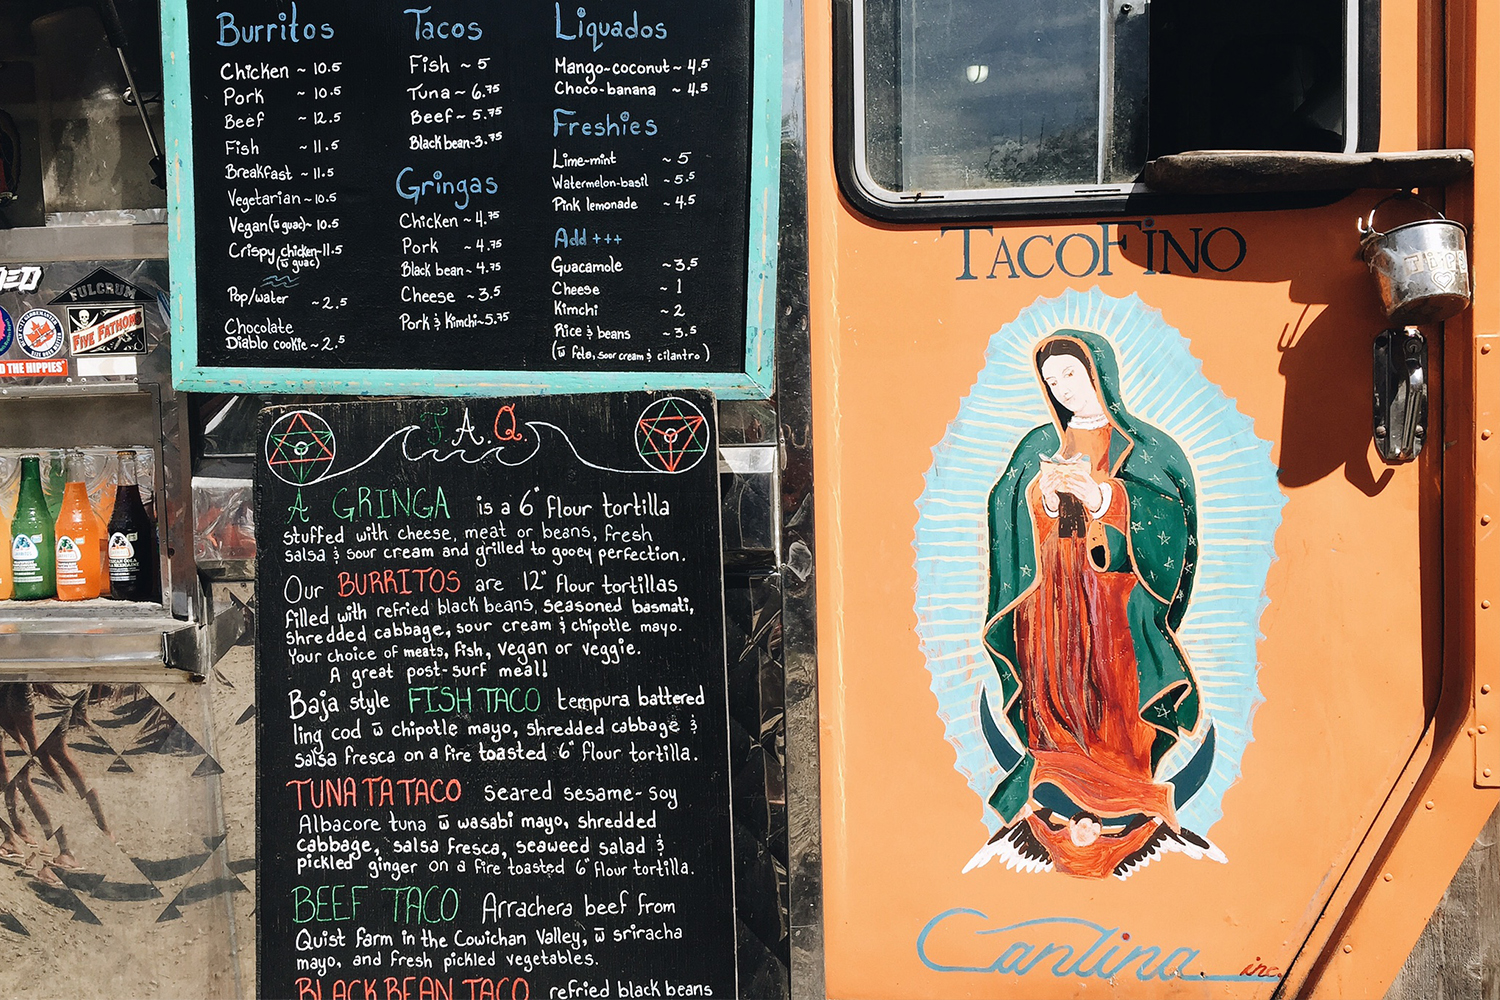 Burritos
Chicken ~ 10.5
Pork ~ 10.5
Beef ~ 12.5
Fish ~ 11.5
Breakfast ~ 11.5
Vegetarian ~ 10.5
Vegan (w̄ guac) ~ 10.5
Crispy chicken ~ 11.5
(w̄ guac)
Pop/water ~ 2.5
Chocolate
Diablo cookie ~ 2.5
Tacos
Fish ~ 5
Tuna ~ 6.75
Beef ~ 5.75
Black bean ~ 3.75
Gringas
Chicken ~ 4.75
Pork ~ 4.75
Black bean ~ 4.75
Cheese ~ 3.5
Pork & Kimchi ~ 5.75
Liquados
Mango-coconut ~ 4.5
Choco-banana ~ 4.5
Freshies
Lime-mint ~ 5
Watermelon-basil ~ 5.5
Pink lemonade ~ 4.5
Add +++
Guacamole ~ 3.5
Cheese ~ 1
Kimchi ~ 2
Rice & beans ~ 3.5
(w̄ feta, sour cream & cilantro)
F.A.Q.
A GRINGA is a 6" flour tortilla
stuffed with cheese, meat or beans, fresh
salsa & sour cream and grilled to gooey perfection.
Our BURRITOS are 12" flour tortillas
filled with refried black beans, seasoned basmati,
shredded cabbage, sour cream & chipotle mayo.
Your choice of meats, fish, vegan or veggie.
A great post-surf meal!
Baja style FISH TACO tempura battered
ling cod w̄ chipotle mayo, shredded cabbage &
salsa fresca on a fire toasted 6" flour tortilla.
TUNA TATACO seared sesame-soy
Albacore tuna w̄ wasabi mayo, shredded
cabbage, salsa fresca, seaweed salad &
pickled ginger on a fire toasted 6" flour tortilla.
BEEF TACO Arrachera beef from
Quist farm in the Cowichan Valley, w̄ sriracha
mayo, and fresh pickled vegetables.
BLACK BEAN TACO refried black beans
TACOFINO
Cantina inc.
TIPS
FULCRUM
FIVE FATHOM
THE HIPPIES'